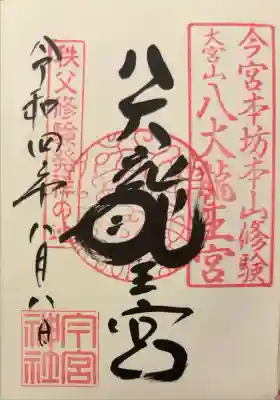 今宮本坊本山修験
大宮山
八大龍王宮
八大龍王宮
秩父修験発祥の地
令和四年八月八日
今宮神社